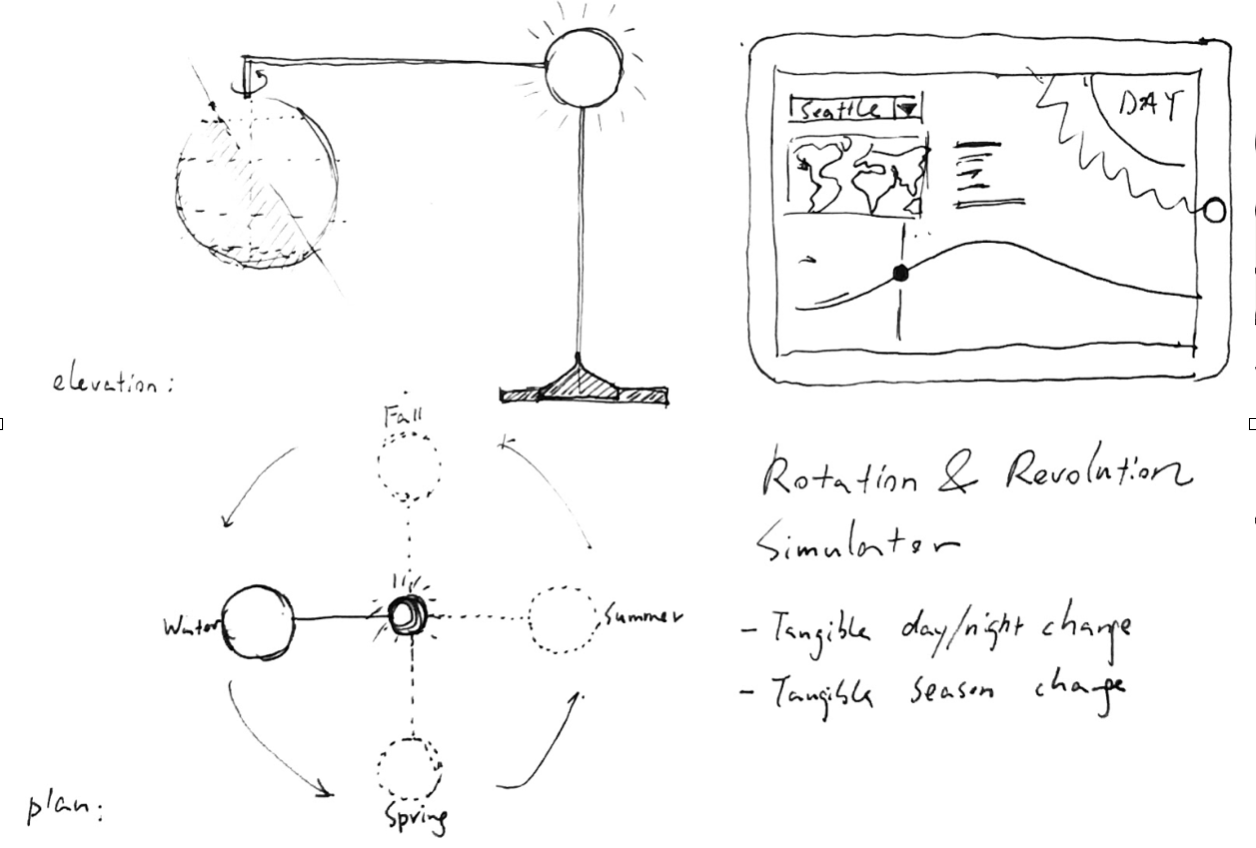 Seattle
DAY
elevation:
Fall
Winter
Summer
Spring
plan:
Rotation & Revolution
Simulator
- Tangible day/night change
- Tangible season change